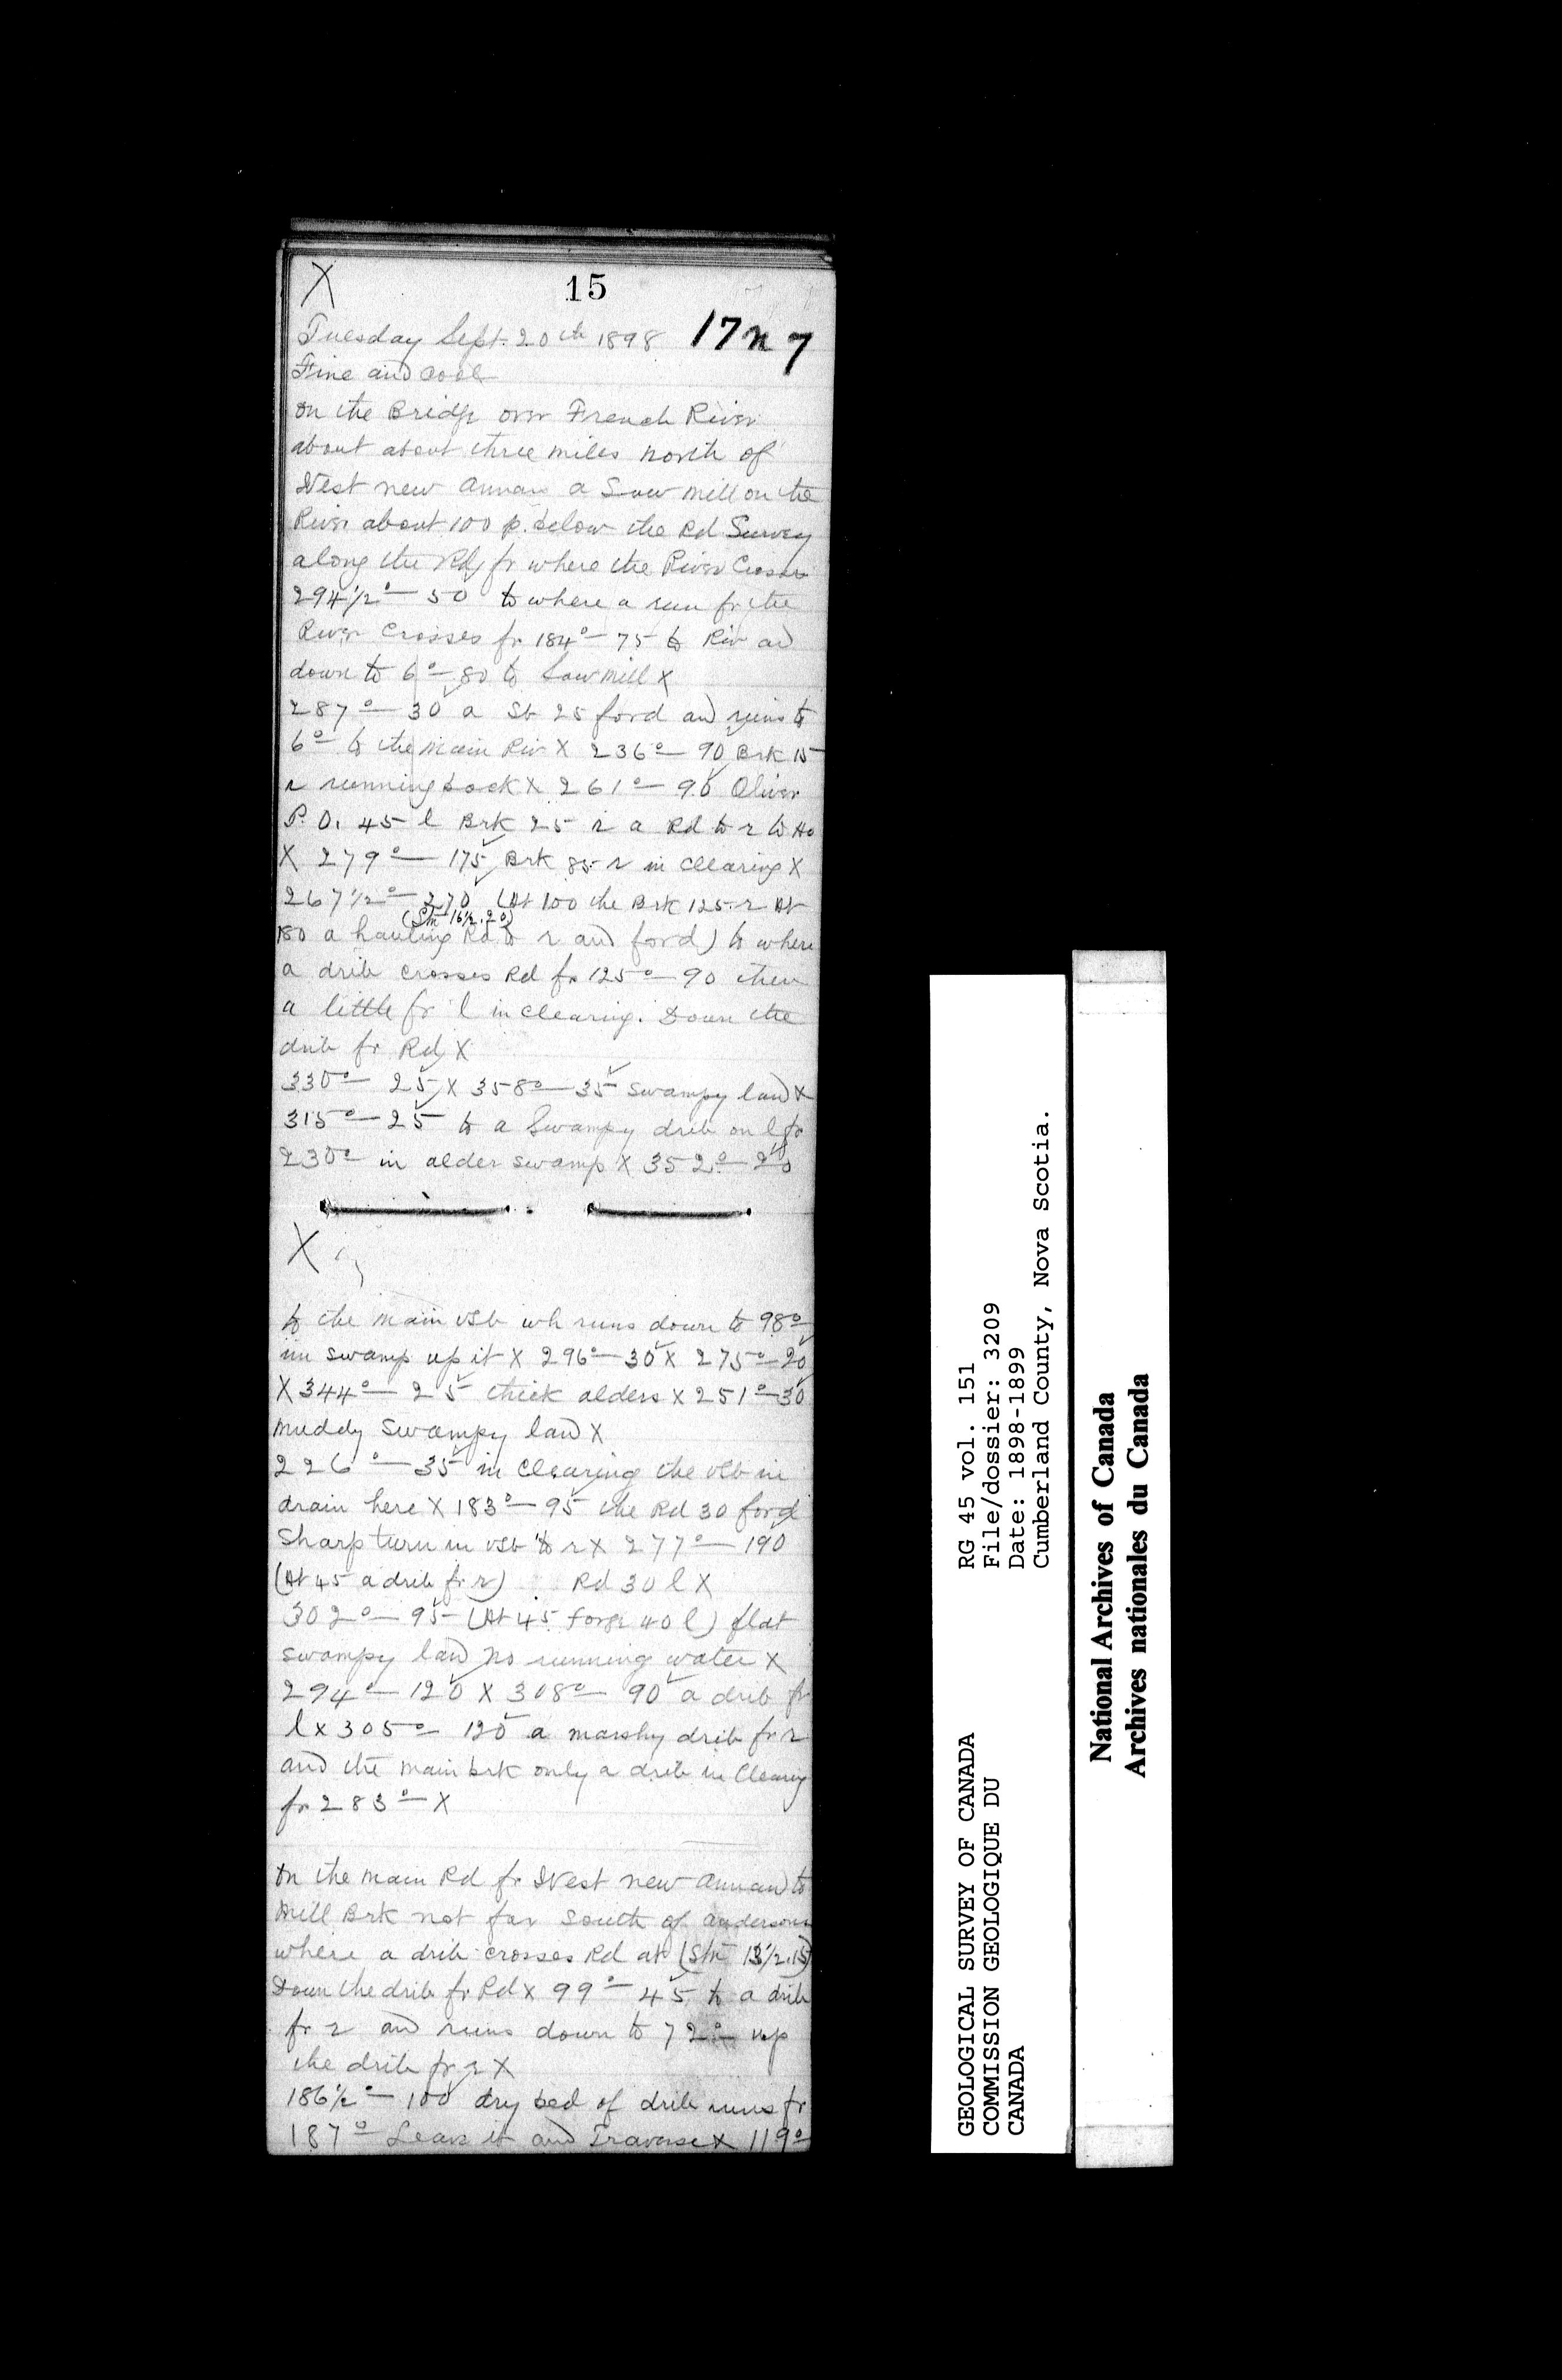 X
15
17 n 7
Tuesday Sept. 20th 1898
Fine and Cool
On the Bridge over French River
about about three miles north of
West new annan a Saw mill on the
River about 100 p. below the Rd Survey
along the Rd fr where the River Crosses
294 1/2° — 50 to where a run fr the
River Crosses fr 184° — 75 to Riv and
down to 6° — 80 to Saw mill X
287° — 30 a St 25 ford and runs to
6° to the main Riv X 236° — 90 Brk 15
r running back X 261° — 90 Oliver
P. O. 45 l Brk 25 r a Rd to r to Ho
X 279° — 175 Brk 85 r in Clearing X
267 1/2° — 270 (At 100 the Brk 125 r At
(Stn 16 1/2.20)
180 a hauling Rd to r and ford) to where
a drib crosses Rd fr 125° — 90 then
a little fr l in clearing. Down the
drib fr Rd X
330° — 25 X 358° — 35 swampy land X
315° — 25 to a Swampy drib on l fr
230° in alder swamp X 352° — 20
X
to the main St wh runs down to 98°
in swamp up it X 296° — 30 X 275° — 20
X 344° — 25 thick alders X 251° — 30
muddy swampy land X
226° — 35 in clearing the St in
drain here X 183° — 95 the Rd 30 ford
Sharp turn in St to r X 277° — 190
(At 45 a drib fr r) Rd 30 l X
302° — 95 (At 45 forge 40 l) flat
swampy land no running water X
294° — 120 X 308° — 90 a drib fr
l X 305° — 120 a marshy drib fr r
and the main brk only a drib in Clearing
fr 283° X
On the main Rd fr West new annan to
Mill Brk not far South of andersons
where a drib crosses Rd at (Stn 13 1/2.15)
Down the drib fr Rd X 99° — 45 to a drib
fr r and runs down to 72° up
the drib fr r X
186 1/2° — 100 dry bed of drib runs fr
187° Leave it and Traverse X 119°
GEOLOGICAL SURVEY OF CANADA
COMMISSION GEOLOGIQUE DU
CANADA
RG 45 vol. 151
File/dossier: 3209
Date: 1898-1899
Cumberland County, Nova Scotia.
National Archives of Canada
Archives nationales du Canada